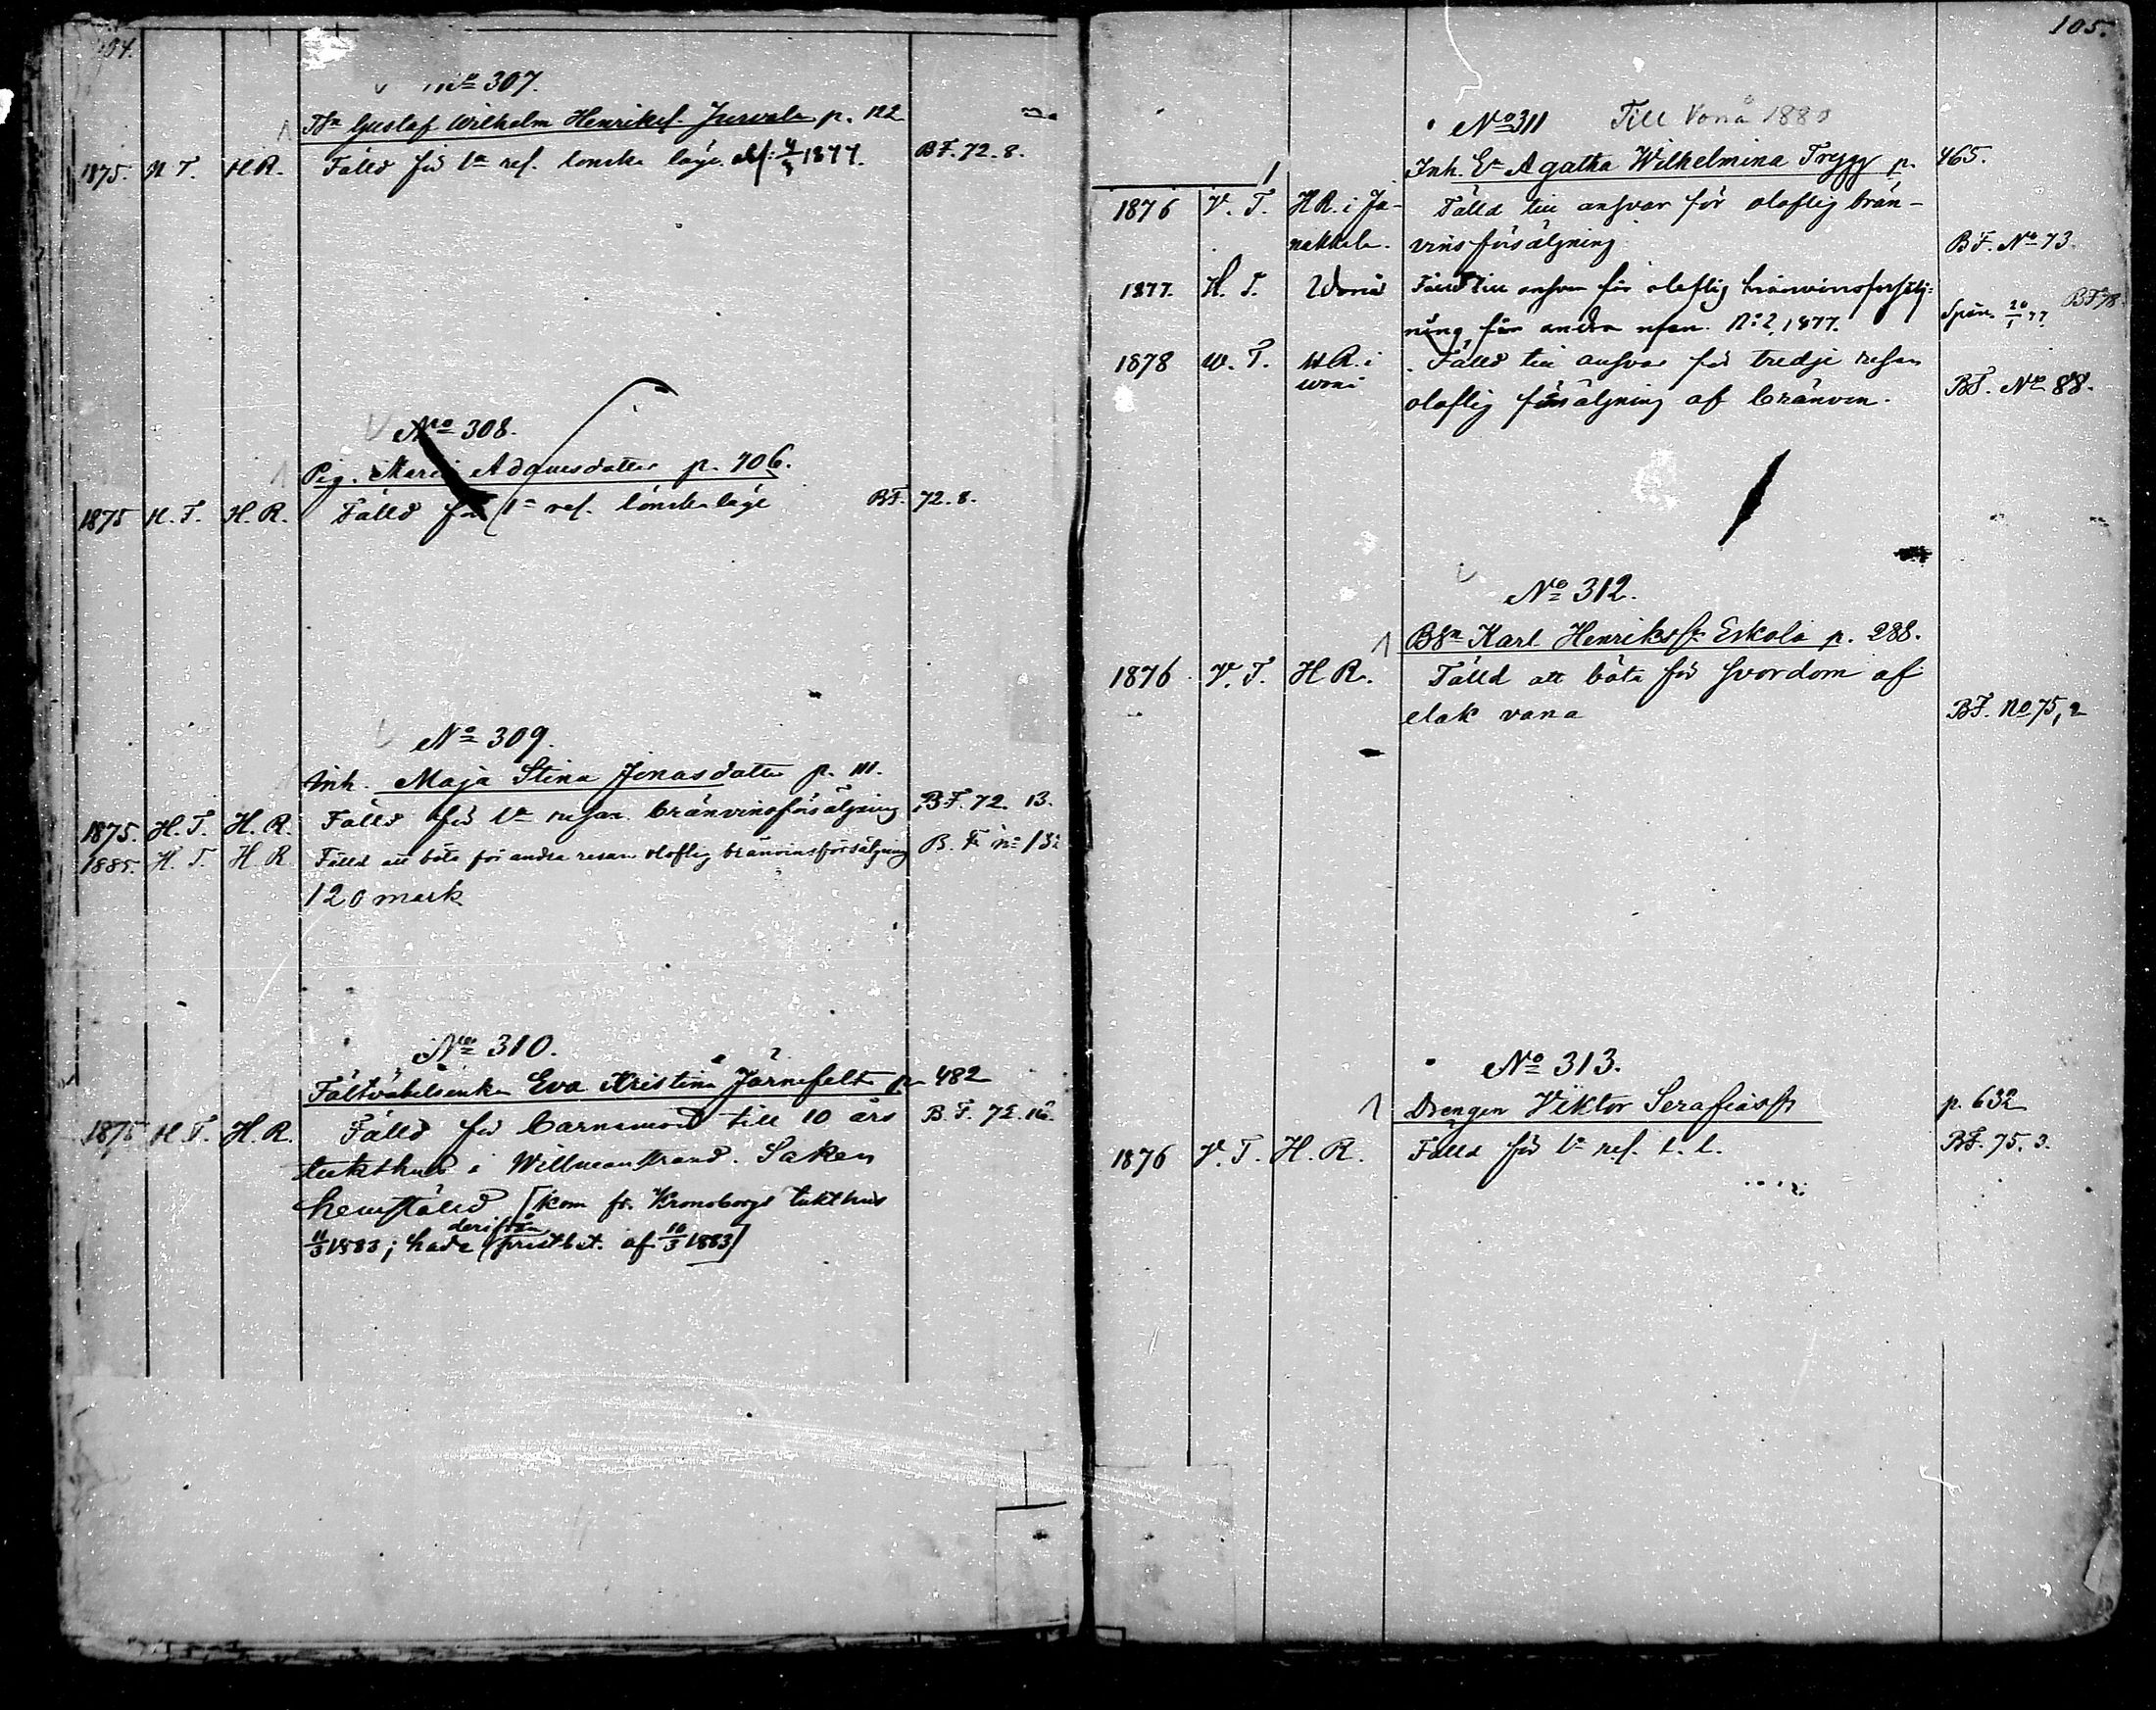 104.
No 307.
Tsn Gustaf Wilhelm Henrikss. Jurvala p. 122
1875. H. T. H.R. Fälld för 1a res. lönska läge. abs: 4/3 1877. BF. 72. 8.
No 308.
Pig. Maria Adamsdotter p. 406.
1875 H. T. H. R. Fälld för 1a res. lönskaläge BF. 72. 8.
No 309.
Inh. Maja Stina Jonasdotter p. 111.
1875. H. T. H. R. Fälld för 1a resan bränvinsförsäljning BF. 72. 13.
1885. H. T. H. R Fälld att böta för andra resan oloflig bränvinsförsäljning B. F. no 132
120 mark
No 310.
Fältväbelsenkan Eva Kristina Järnefelt p. 482
1875 H. T. H. R. Fälld för barnamord till 10 års B. F. 72. 16.
tukthus i Willmanstrand. Saken
hemstäld [kom fr. Kronoborgs tukthus
11/3 1883; hade derifrån prestbet. af 10/3 1883]
105.
No 311 Till Vonå 1880
Inh. Ea Agatha Wilhelmina Trygg p. 465.
1876 V. T. H R. i Ja- Fälld till ansvar för oloflig brän-
nakkala. vinsförsäljning BF. No 73.
1877. H. T. Wånå Fälld till ansvar för oloflig bränvinsförsälj- BF 78
ning för andra resan. No: 2, 1877.
1878 W. T. H R. i Fälld till ansvar för tredje resan
oloflig försäljning af bränvin. BF. No 88.
No 312.
Bsn Karl Henrikss. Eskola p. 288.
1876 V. T. H R. Fälld att böta för svordom af
elak vana BF. No 75, 2
No 313.
Drengen Viktor Serafiass. p. 632
1876 V. T. H. R. Fälld för 1a res. L. L. BF. 75. 3.